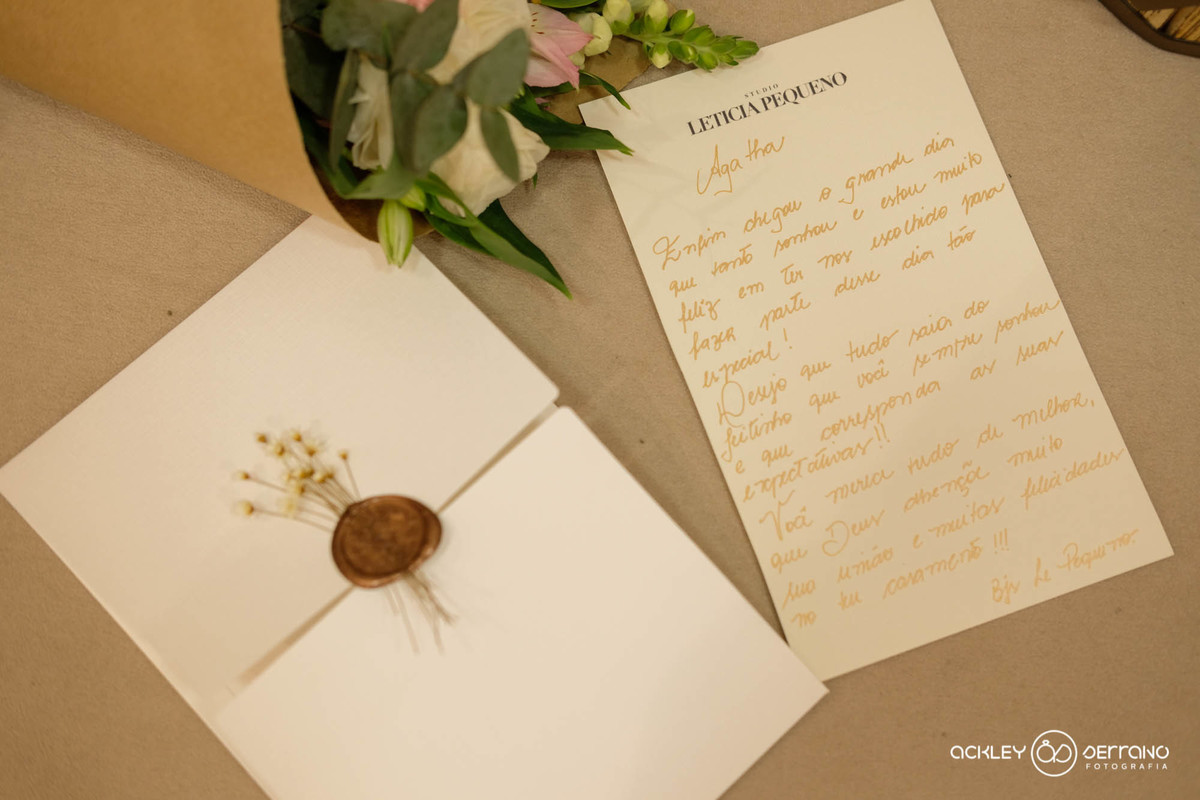 STUDIO
LETICIA PEQUENO
Agatha
Enfim chegou o grande dia
que tanto sonhou e estou muito
feliz em ter nos escolhido para
fazer parte desse dia tão
especial!
Desejo que tudo saia do
jeitinho que você sempre sonhou
e que corresponda as suas
expectativas!!
Você merece tudo de melhor,
que Deus abençõe muito
sua união e muitas felicidades
no seu casamento!!!
Bjs Le Pequeno
ACKLEY SERRANO
FOTOGRAFIA